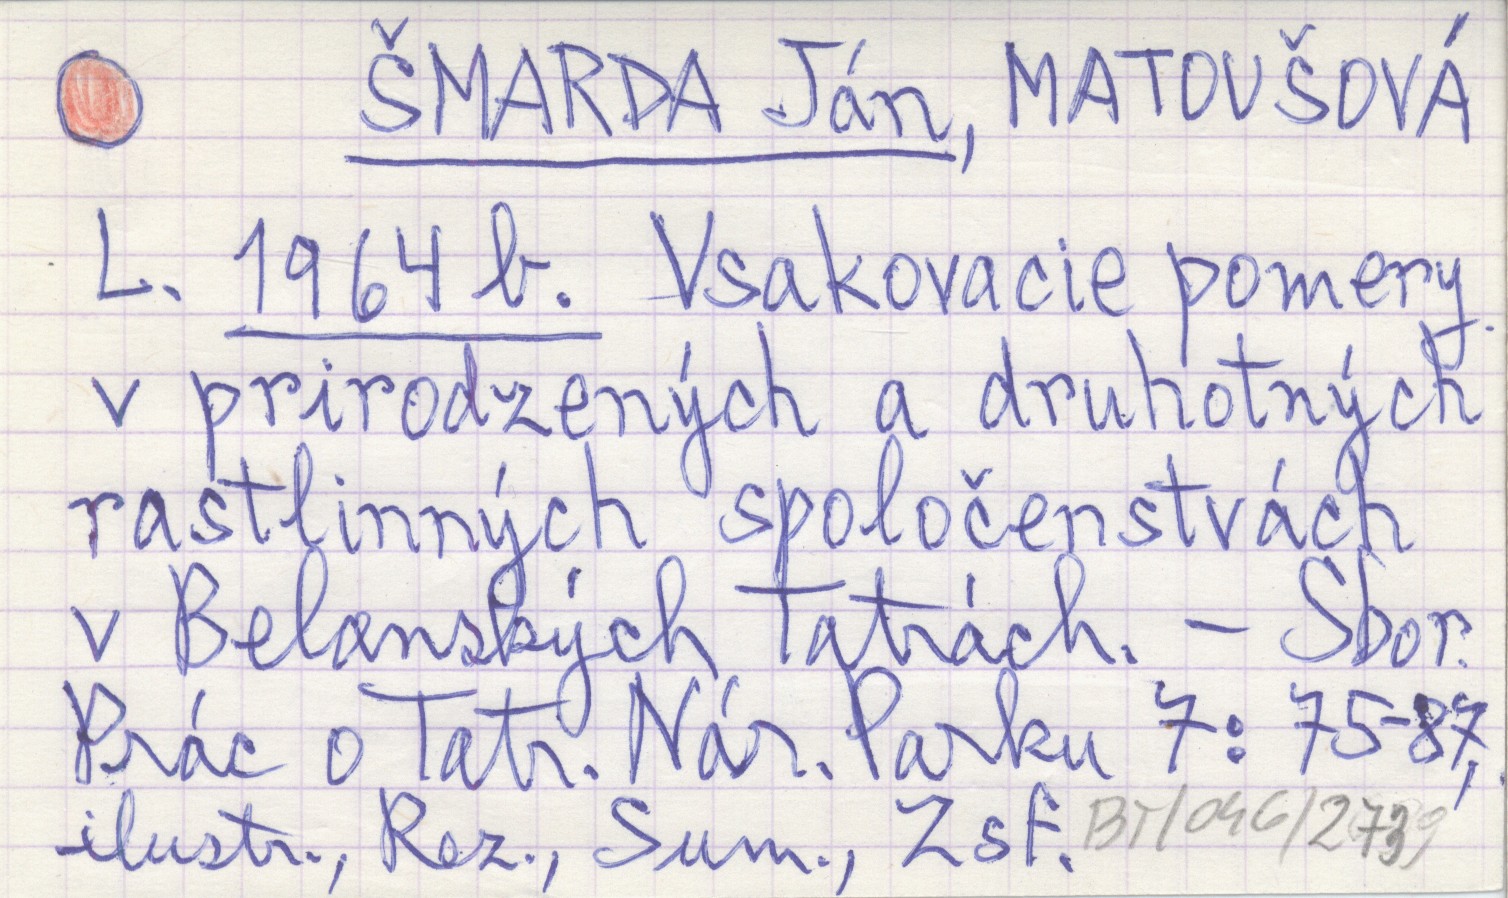 ŠMARDA Ján, MATOUŠOVÁ
L. 1964 b. Vsakovacie pomery
v prirodzených a druhotných
rastlinných spoločenstvách
v Belanských Tatrách. – Sbor.
Prác o Tatr. Nár. Parku 7: 75-87,
ilustr., Rez., Sum., Zsf.